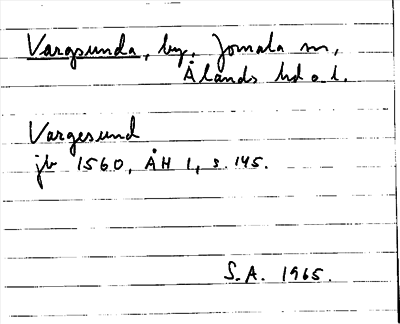 Vargsunda, by, Jomala sn,
Ålands hd o. l.
Vargesund
jb 1560, ÅH 1, s. 145.
S.A. 1965.